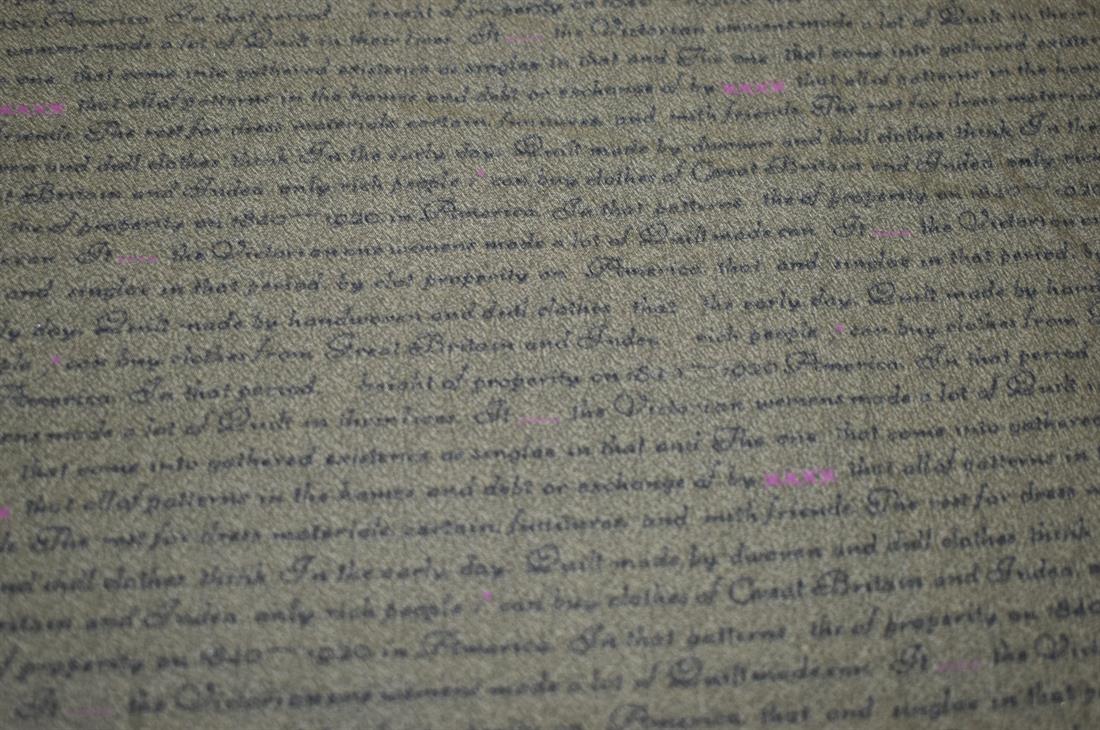 America. In that period height of property on 1840
womens made a lot of Quilt in their lives. It the Victorian womens made a lot of Quilt in their
one, that come into gathered existence as singles in that and The one, that come into gathered existen
xxxx that all of patterns in the homes and debt or exchange of by xxxx that all of patterns in the hom
friends. The rest for dress materials certain, funitures, and with friends. The rest for dress materials
and dull clothes think In the early day, Quilt made by dwoven and dull clothes think In the
t Britain and Indea, only rich people * can buy clothes of Great Britain and Indea, only rich
the of property on 1840~1020 in America. In that patterns, the of property on 1840~1020
It the Victorian one womens made a lot of Quilt made can It the Victorian
and singles in that period, by clot property on America, that and singles in that period by
ly day, Quilt made by handwoven and dull clothes that the early day, Quilt made by hand
ple * can buy clothes from Great Britain and Indea rich people * can buy clothes from
America. In that period height of property on 1020 America. In that period
ens made a lot of Quilt in their lives. It the Victorian womens made a lot of Quilt
that come into gathered existence as singles in that and The one, that come into gathered
that all of patterns in the homes and debt or exchange of by xxxx that all of patterns in
The rest for dress materials certain, funitures, and with friends. The rest for dress
and dull clothes think In the early day, Quilt made by dwoven and dull clothes think
ritain and Indea, only rich people * can buy clothes of Great Britain and Indea,
f property on 1840~1020 in America. In that patterns, the of property on 1840
It the Victorian one womens made a lot of Quilt made can It the Vict
America, that and singles in that